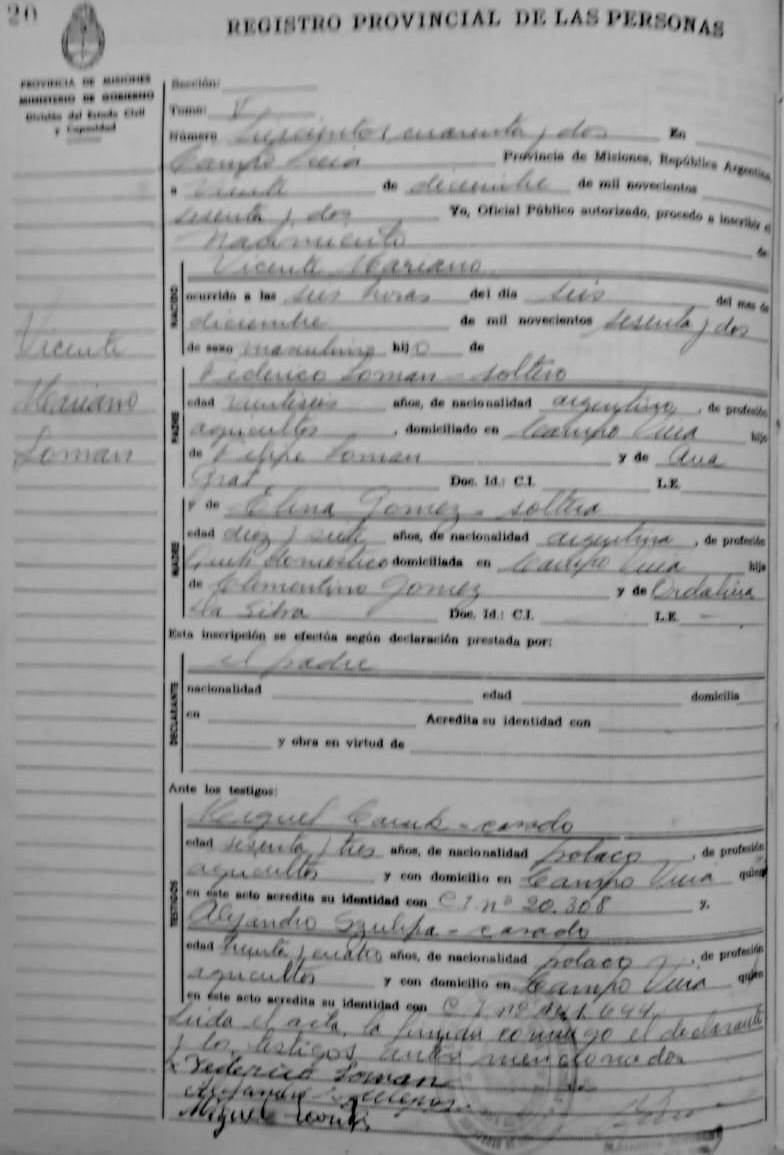 20
REGISTRO PROVINCIAL DE LAS PERSONAS
PROVINCIA DE MISIONES
MINISTERIO DE GOBIERNO
División del Estado Civil
y Capacidad
Sección:
Tomo: V
Número cuarenta y dos En
Campo Viera Provincia de Misiones, República Argentina
a veinte de diciembre de mil novecientos
sesenta y dos Yo, Oficial Público autorizado, procedo a inscribir el
Nacimiento de
NACIDO
Vicente Mariano
ocurrido a las seis horas del día seis del mes de
diciembre de mil novecientos sesenta y dos
de sexo masculino hijo de
Vicente
Mariano
Loman
PADRE
Federico Loman - soltero
edad veintiseis años, de nacionalidad argentino, de profesión
agricultor, domiciliado en Campo Viera hijo
de Felipe Loman y de Ana
Graf Doc. Id.: C.I. L.E.
MADRE
y de Elina Gomez - soltera
edad diez y siete años, de nacionalidad argentina, de profesión
domestico domiciliada en Campo Viera hija
de Clementino Gomez y de Ordalina
da Silva Doc. Id.: C.I. L.E. -
Esta inscripción se efectúa según declaración prestada por:
DECLARANTE
el padre
nacionalidad edad domicilia
en Acredita su identidad con
y obra en virtud de
Ante los testigos:
TESTIGOS
Miguel - casado
edad sesenta y tres años, de nacionalidad polaco, de profesión
agricultor y con domicilio en Campo Viera quien
en este acto acredita su identidad con C.I. nº 20.308 y,
Alejandro Szulepa - casado
edad treinta y cuatro años, de nacionalidad polaco, de profesión
agricultor y con domicilio en Campo Viera quien
en este acto acredita su identidad con C.I. nº
Leida el acta, la firman conmigo el declarante
y los testigos antes mencionados
x Federico Loman